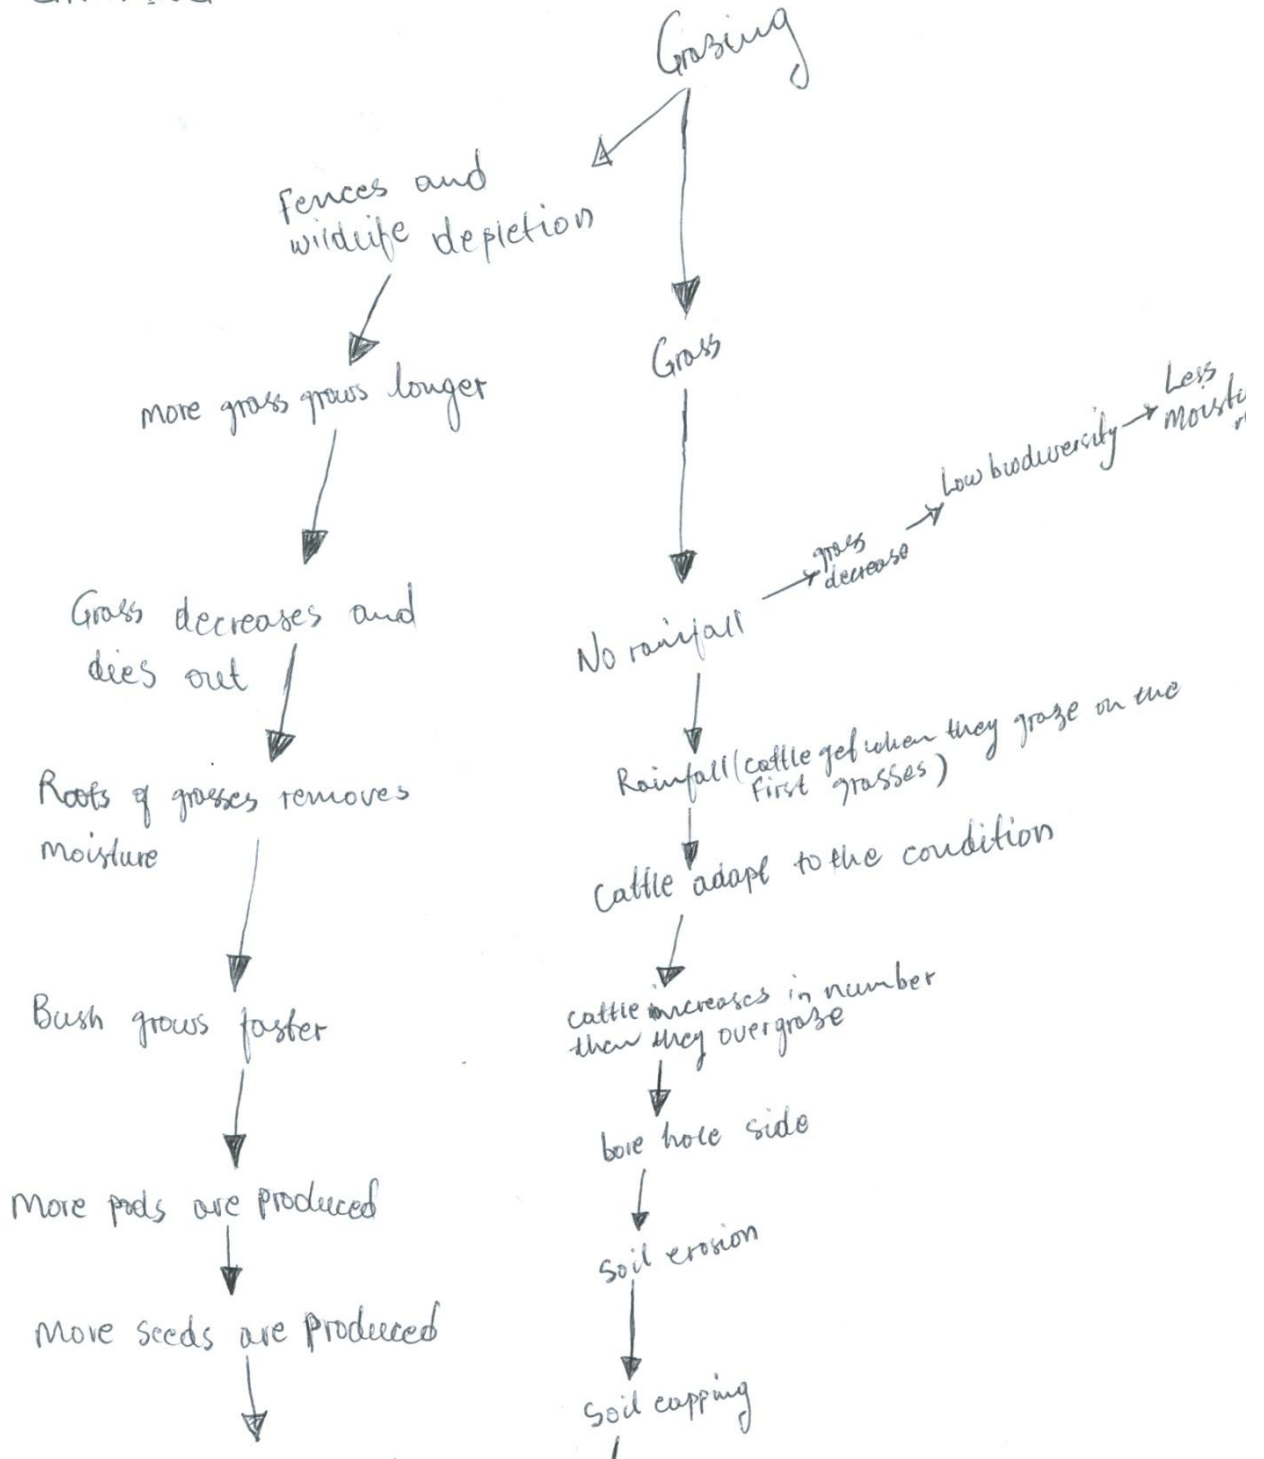 Grazing
Fences and
wildlife depletion
more grass grows longer
Grass decreases and
dies out
Roots of grasses removes
moisture
Bush grows faster
More pods are produced
More seeds are produced
Grass
No rainfall
grass
decrease
Low biodiversity
Less
Rainfall (cattle get when they graze on the
first grasses)
Cattle adapt to the condition
cattle increases in number
then they overgraze
bore hole side
Soil erosion
Soil capping